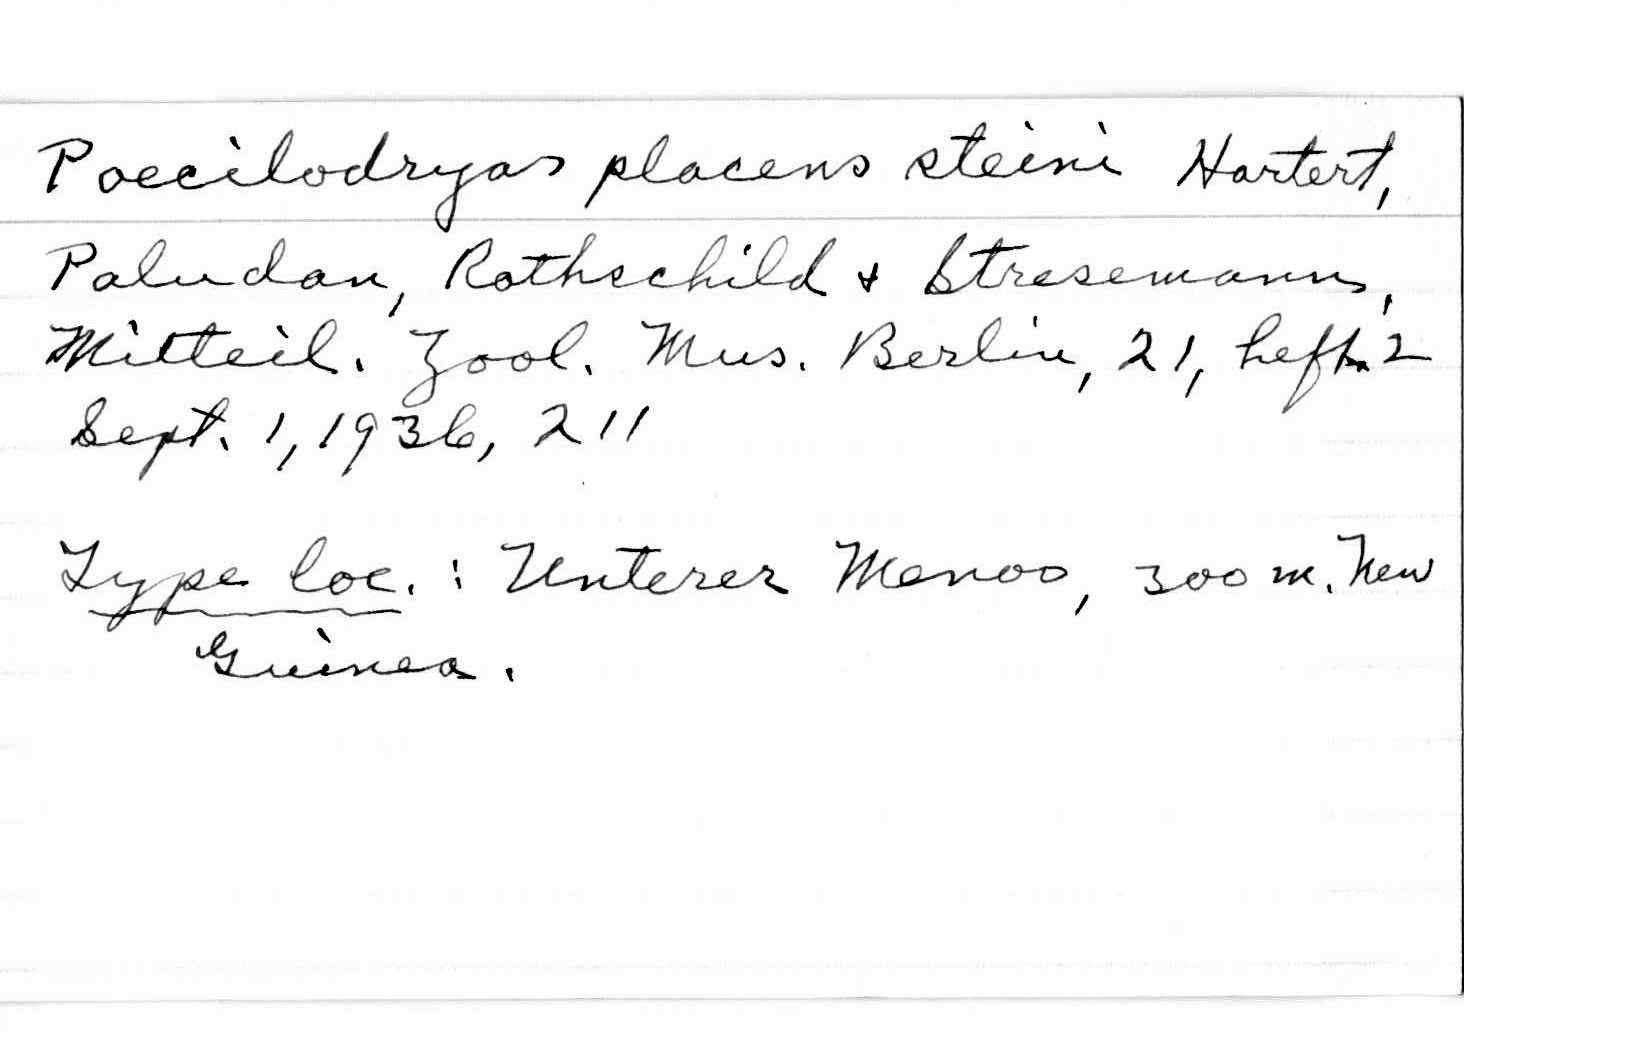 Poecilodryas placens steini Hartert,
Paludan, Rothschild & Stresemann,
Mitteil. Zool. Mus. Berlin, 21, heft 2
Sept. 1, 1936, 211
Type loc. : Unterer Menoo, 300 m. New
Guinea.